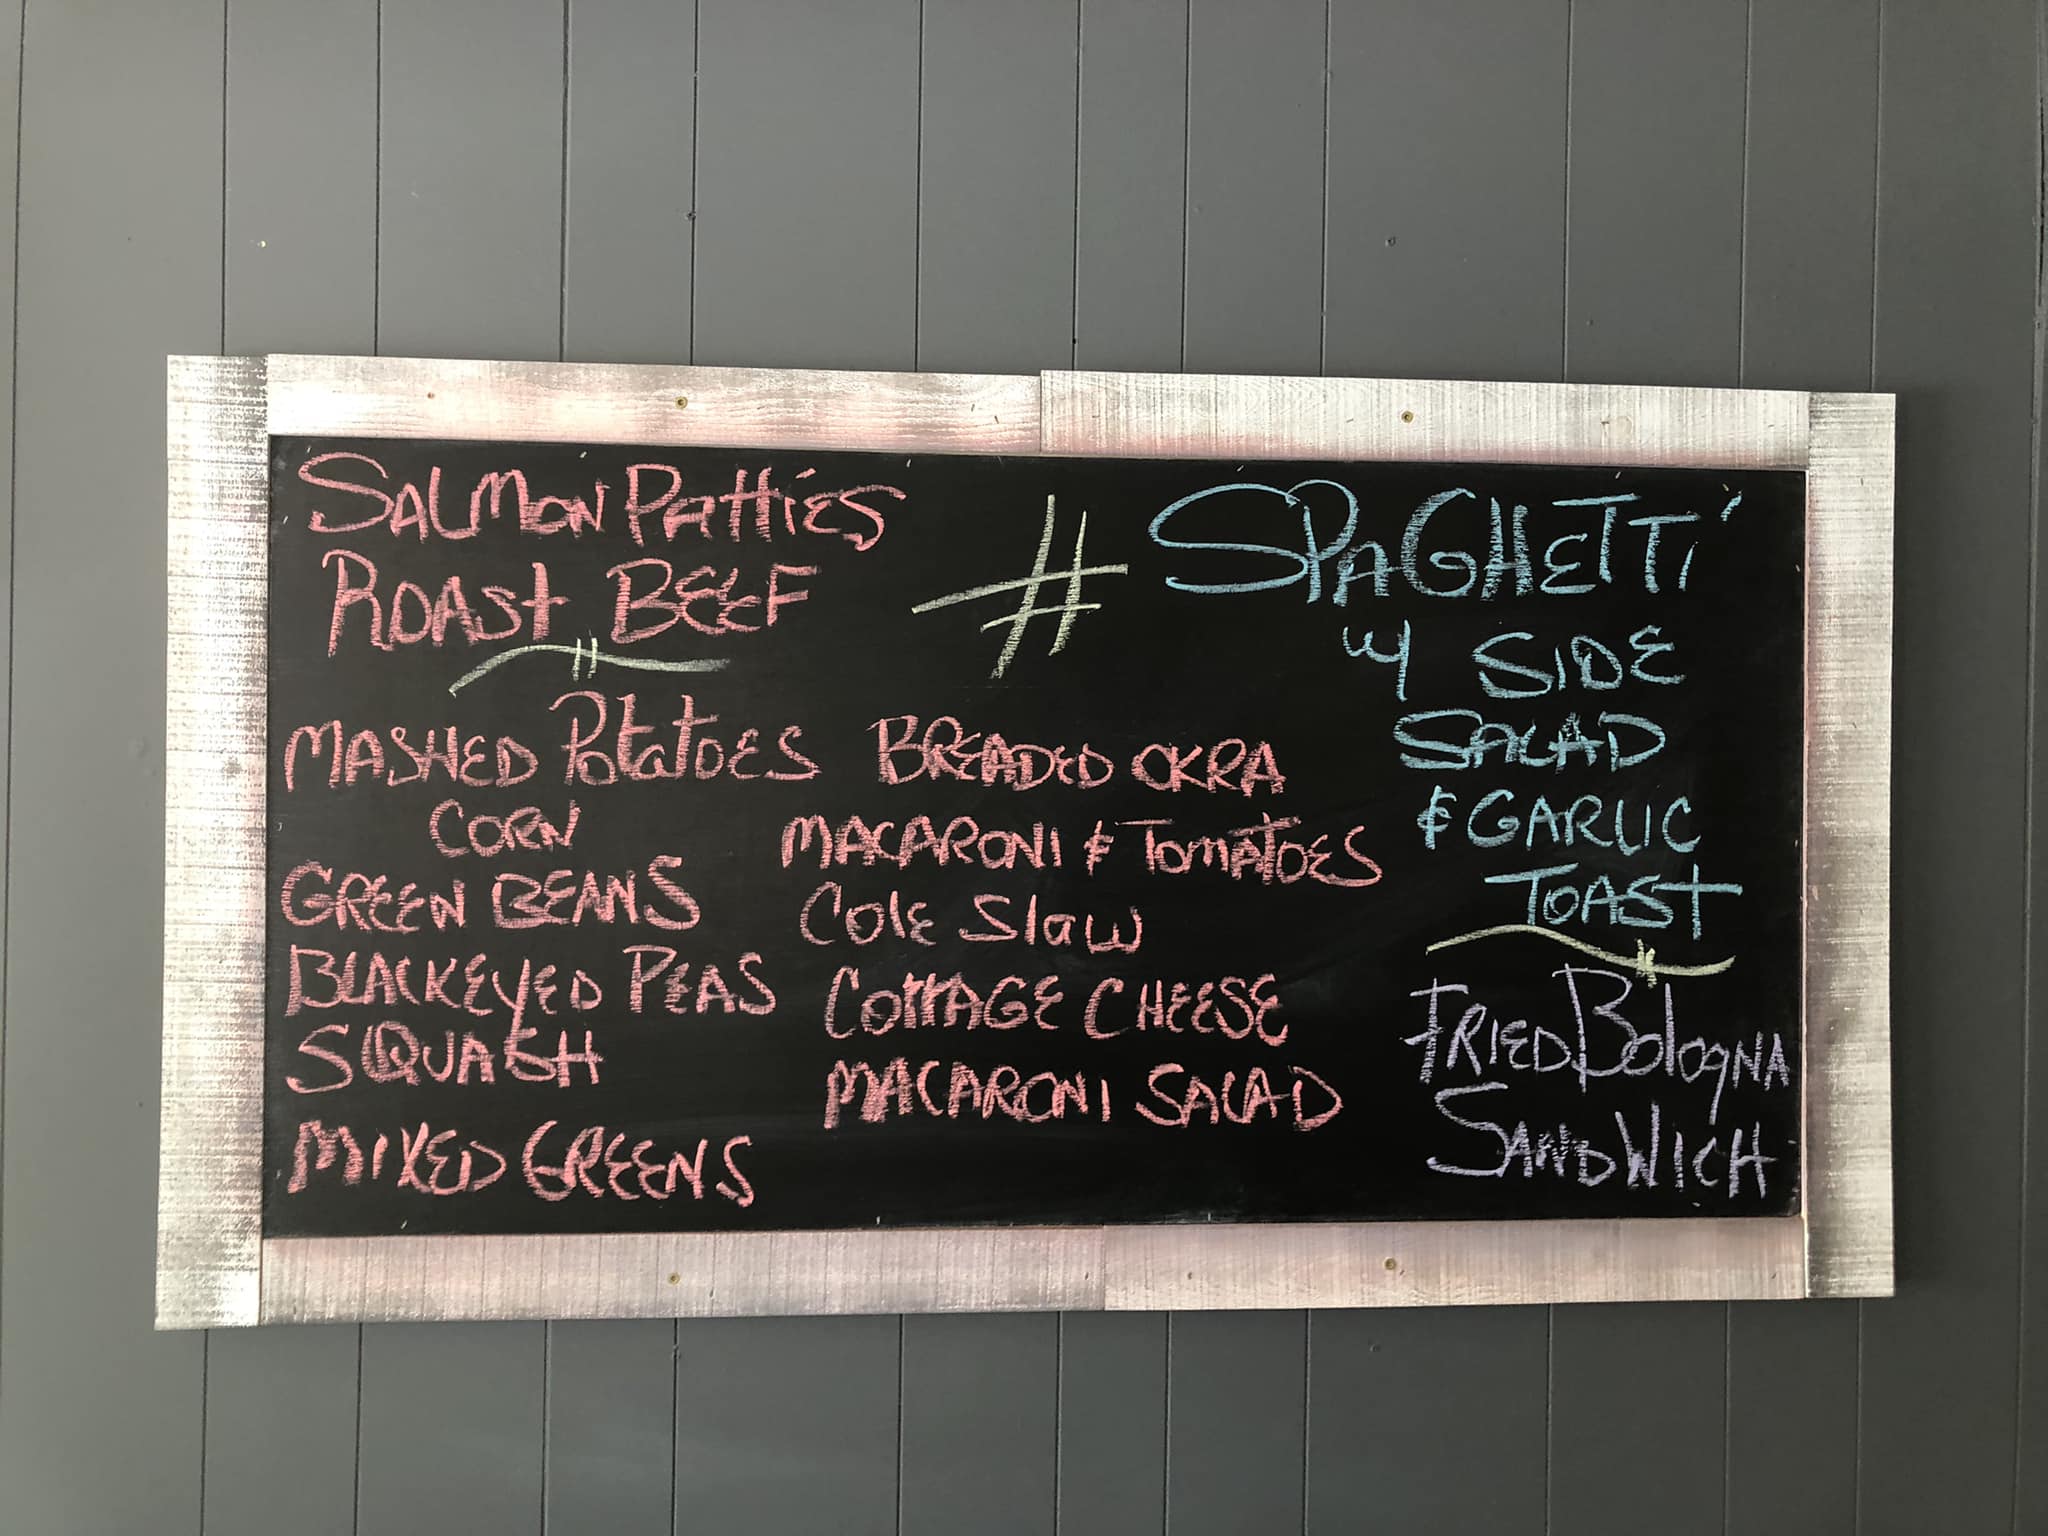 SALMON PATTIES
ROAST BEEF
MASHED POTATOES
CORN
GREEN BEANS
BLACKEYED PEAS
SQUASH
MIXED GREENS
BREADED OKRA
MACARONI & TOMATOES
COLE SLAW
COTTAGE CHEESE
MACARONI SALAD
#
SPAGHETTI
W/ SIDE
SALAD
& GARLIC
TOAST
FRIED BOLOGNA
SANDWICH